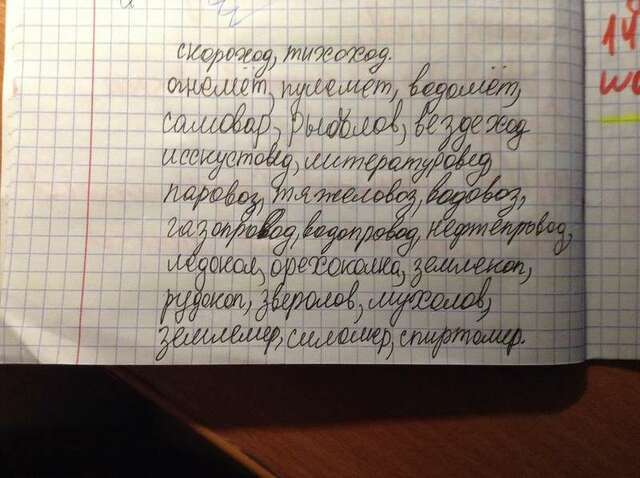 скороход, тихоход.
огнемёт, пулемёт, водомёт,
самовар, рыболов, вездеход
исскустовед, литературовед
паровоз, тяжеловоз, водовоз,
газопровод, водопровод, нефтепрвод,
ледокол, орехоколка, землекоп,
рудокоп, зверолов, мухолов,
землемер, силомер, спиртомер.
14